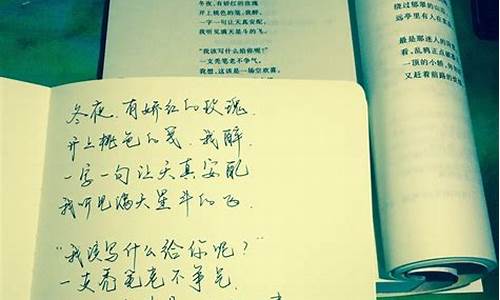 冬夜,有娇红的玫瑰
开上桃色的笺,我醉,
一字一句让天真安配,
我听见满天星斗的飞。
“我该写什么给你呢?”
一支秃笔老不争气。
我想,这该是一场空欢喜。
绕过郁郁的山
远亭里有人在
最是那迷人的
看,乱鸦正点
一顶的小轿,
又赶着前路的
冬夜,有娇红的玫瑰,
开上桃色的笺,我醉,
一字一句让天真安配
我听见满天星斗的飞。
“我该写什么给你呢?”
一支秃笔老不争气,